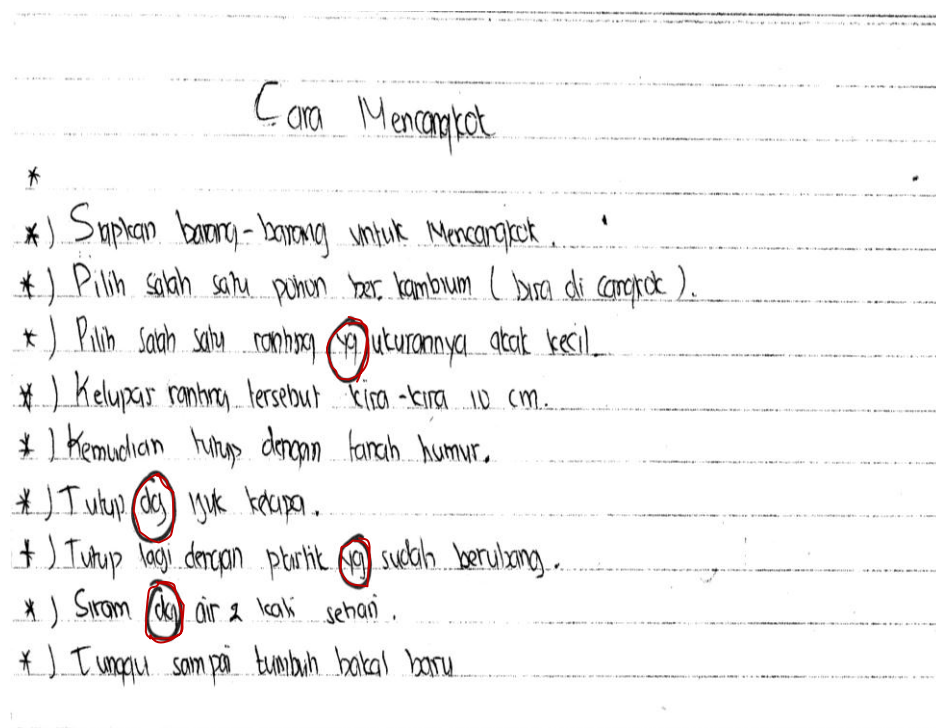 Cara Mencangkok
*
*) Siapkan barang-barang untuk Mencangkok.
*) Pilih salah satu pohon ber. kambium (bisa di cangkok).
*) Pilih salah satu ranting yg ukurannya agak kecil.
*) Kelupas ranting tersebut kira-kira 10 cm.
*) Kemudian tutup dengan tanah humus.
*) Tutup dg ijuk kelapa.
*) Tutup lagi dengan plastik yg sudah berlubang.
*) Siram dg air 2 kali sehari.
*) Tunggu sampai tumbuh bakal baru